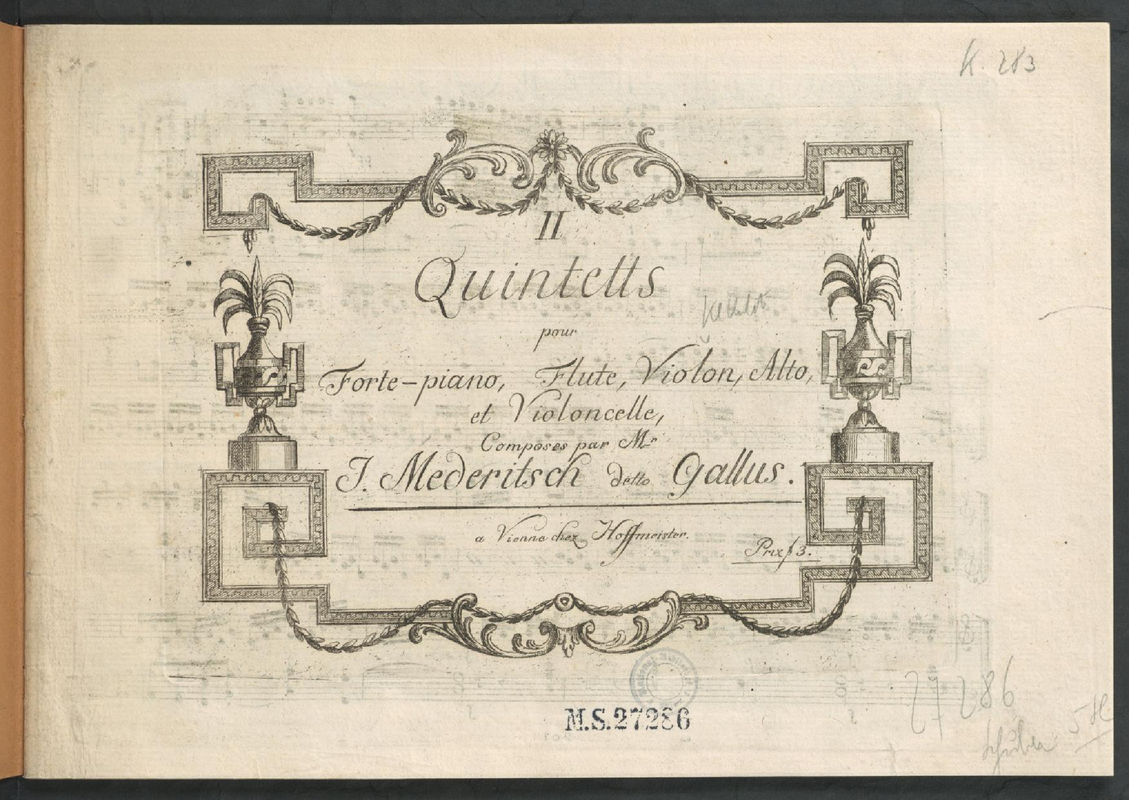 K. 283
II
Quintetts
pour
Forte-piano, Flute, Violon, Alto,
et Violoncelle,
Composés par Mr
J. Mederitsch detto Gallus.
a Vienna chez Hoffmeister.
Prix f 3.
M.S.27286
27286